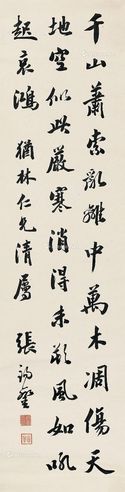 千山蕭索亂離中萬木凋傷天
地空似此嚴寒消得未朔風如吼
起哀鴻 猶林仁兄清屬 張錫鑾